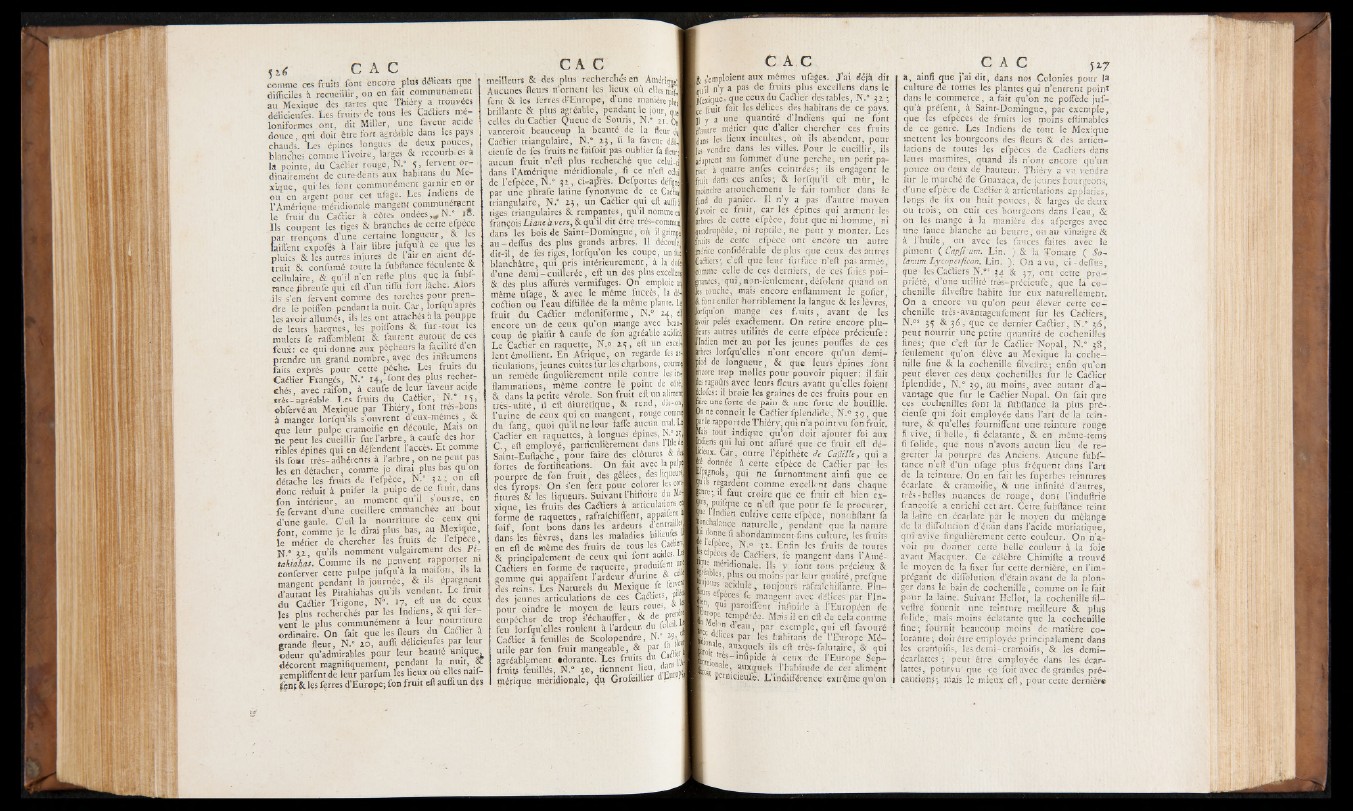 526 C A C
comme ces fruits sont encore plus délicats que
difficiles à recueillir, on en fait communément
au Mexique des tartes que Thiéry a trouvées
délicieuses. Les fruits de tous les Cactiers mé-
loniformes ont, dit Miller, une saveur acide
douce, qui doit être fort agréable dans les pays
chauds. Les épines longues de deux pouces,
blanches comme l'ivoire, larges & recourbées à
la pointe, du Cactier rouge, N.° 5, servent or-
dinairement de cure-dents aux habitans du Me-
xique, qui les font communément garnir en or
ou en argent pour cet usage. Les Indiens de
l'Amérique méridionale mangent communément
le fruit du Cactier à côtes ondées, N.° 18.
Ils coupent les tiges & branches de cette espèce
par tronçons d'une certaine longueur, & les
laissent exposés à l'air libre jusqu'à ce que les
pluies & les autres injures de l'air en aient dé-
truit & consumé toute la substance féculente &
cellulaire, & qu'il n'en reste plus que la subs-
tance fibreuse qui est d'un tissu fort lâche. Alors
ils s'en servent comme des torches pour pren-
dre le poisson pendant la nuit. Car, lorsqu'après
les avoir allumés, ils les ont attachés à la pouppe
de leurs barques, les poissons & sur-tout les
mulets se rassemblent & sautent autour de ces
feux: ce qui donne aux pêcheurs la facilité d'en
prendre un grand nombre, avec des instrumens
faits exprès pour cette pêche. Les fruits du
Cactier Frangés, N.° 14, sont des plus recher-
chés, avec raison, à cause de leur saveur acide
très-agréable. Les fruits du Cactier, N.° 15,
observé au Mexique par Thiéry, sont très-bons
à manger lorsqu'ils s'ouvrent d'eux-mêmes, &
que leur pulpe cramoisie en découle. Mais on
ne peut les cueillir sur l'arbre, à cause des hor-
ribles épines qui en défendent l'accès. Et comme
ils sont très-adhérents à l'arbre, on ne peut pas
les en détacher, comme je dirai plus bas qu'on
détache les fruits de l'espèce, N.° 32; on est
donc réduit à puiser la pulpe de ce fruit, dans
son intérieur, au moment qu'il s'ouvre, en
se servant d'une cueillere emmanchée au bout
d'une gaule. C'est la nourriture de ceux qui
font, comme je le dirai plus bas, au Mexique,
le métier de chercher les fruits de l'espèce,
N.° 32, qu'ils nomment vulgairement des Pi-
tahiahas. Comme ils ne peuvent rapporter ni
conserver cette pulpe jusqu'à la maison, ils la
mangent pendant la journée, & ils épargnent
d'autant les Pitahiahas qu'ils vendent. Le fruit
du Cactier Trigone, N°. 17, est un de ceux
les plus recherchés par les Indiens, & qui ser-
vent le plus communément à leur nourriture
ordinaire. On sait que les fleurs du Cactier à
grande fleur, N.° 20, aussi délicieuses par leur
odeur qu'admirables pour leur beauté unique,
décorent magnifiquement, pendant la nuit, &
remplissent de leur parfum les lieux où elles nais-
sent & les serres d'Europe; son fruit est aussi un des
C A C
meilleurs & des plus recherchés en Amérique.
Aucunes fleurs n'ornent les lieux où elles
sent & les serres d'Europe, d'une manière plus
brillante & plus agréable, pendant le jour, que
celles du Cactier Queue de Souris, N.° 21.
vanteroit beaucoup la beauté de la fleur du
Cactier triangulaire, N.° 23, si la saveur déli-
cieuse de ses fruits ne faisoit pas oublier sa fleur;
aucun fruit n'est plus recherché que celui-ci
dans l'Amérique méridionale, si ce n'est celui
de l'espèce, N.° 32, ci-après. Desportes désigne
par une phrase latine synonyme de ce Cactier
triangulaire, N.° 23, un Cactier qui est aussi à
tiges triangulaires & rempantes, qu'il nomme en
françois Liane à vers, & qu'il dit être très-commun
dans les bois de Saint-Domingue, où il grimpe
au-dessus des plus grands arbres. Il découle,
dit-il, de ses tiges, lorsqu'on les coupe, un suc
blanchâtre, qui pris intérieurement, à la dose
d'une demi-cuillerée, est un des plus excellens
& des plus assurés vermifuges. On emploie au
même usage, & avec le même succès, la dé-
coction ou l'eau distillée de la même plante. Le
fruit du Cactier méloniforme, N.° 24, est
encore un de ceux qu'on mange avec beau-
coup de plaisir à cause de son agréable acidité.
Le Cactier en raquette, N.° 25, est un excel-
lent émollient. En Afrique, on regarde ses ar-
ticulations, jeunes cuites sur les charbons, comme
un remède singulièrement utile contre les in-
flammations, même contre le point de côté,
& dans la petite vérole. Son fruit est un aliment
très-usité, il est diurétique, & rend, dit-on,
l'urine de ceux qui en mangent, rouge comme
du sang, quoi qu'il ne leur fasse aucun mal. Le
Cactier en raquettes, à longues épines, N.° 25,
C., est employé, particulièrement dans l'Isle de
Saint-Eustache, pour faire des clôtures &
sortes de fortifications. On fait avec la pulpe
pourpre de son fruit, des gêlées, des liqueurs,
des syrops. On s'en sert pour colorer les con-
fitures & les liqueurs. Suivant l'histoire du Me-
xique, les fruits des Cactiers à articulations en
forme de raquettes, rafraîchissent, appaisent la
soif, sont bons dans les ardeurs d'entrailles,
dans les fièvres, dans les maladies bilieuses. Il
en est de même des fruits de tous les Cactiers,
& principalement de ceux qui sont acides. Les
Cactiers en forme de raquette, produisent une
gomme qui appaisent l'ardeur d'urine & celle
des reins. Les Naturels du Mexique se servent
des jeunes articulations de ces Cactiers, pilées
pour oindre le moyen de leurs roues, & les
empêcher de trop s'échauffer, & de prendre
feu lorsqu'elles roulent à l'ardeur du soleil. Le
Cactier à feuilles de Scolopendre, N.° 29, est
utile par son fruit mangeable, & par sa fleur
agréablement odorante. Les fruits du Cactier à
fruits feuillés, N.° 30, tiennent lieu, dans l'A-
mérique méridionale, du Groseillier d'Europe,
C A C
& s'emploient aux mêmes usages. J'ai déjà dit
qu'il n'y a pas de fruits plus excellens dans le
Mexique, que ceux du Cactier des tables, N.° 32;
ce fruit fait les délices des habitans de ce pays.
Il y a une quantité d'Indiens qui ne font
d'autre métier que d'aller chercher ces fruits
dans les lieux incultes, où ils abondent, pour
les vendre dans les villes. Pour le cueillir, ils
adaptent au sommet d'une perche, un petit pa-
nier à quatre anses ceintrées; ils engagent le
fruit dans ces anses; & lorsqu'il est mûr, le
moindre attouchement le fait tomber dans le
fond du panier. Il n'y a pas d'autre moyen
d'avoir ce fruit, car les épines qui arment les
arbres de cette espèce, font que ni homme, ni
quadrupède, ni reptile, ne peut y monter. Les
fruits de cette espèce ont encore un autre
mérite considérable de plus que ceux des autres
Cactiers; c'est que leur surface n'est pas armée,
comme celle de ces derniers, de ces soies poi-
gnantes, qui, non-seulement, désolent quand on
les touche, mais encore enflamment le gosier,
& font enfler horriblement la langue & les lèvres,
lorsqu'on mange ces fruits, avant de les
avoir pelés exactement. On retire encore plu-
sieurs autres utilités de cette espèce précieuse:
l'Indien met au pot les jeunes pousses de ces
arbres lorsqu'elles n'ont encore qu'un demi-
pied de longueur, & que leurs épines sont
encore trop molles pour pouvoir piquer: il fait
des ragoûts avec leurs fleurs avant qu'elles soient
écloses: il broie les graines de ces fruits pour en
faire une sorte de pain & une sorte de bouillie.
On ne connoît le Cactier splendide, N.° 39, que
par le rapport de Thiéry, qui n'a point vu son fruit.
Mais tout indique qu'on doit ajouter foi aux
Indiens qui lui ont assuré que ce fruit est dé-
licieux. Car, outre l'épithète de Castille, qui a
été donnée à cette espèce de Cactier par les
Espagnols, qui ne surnomment ainsi que ce
qu'ils regardent comme excellent dans chaque
genre; il faut croire que ce fruit est bien ex-
quis, puisque ce n'est que pour se le procurer,
que l'Indien cultive cette espèce, nonobstant sa
nonchalance naturelle, pendant que la nature
lui donne si abondamment sans culture, les fruits
de l'espèce, N.° 32. Enfin les fruits de toutes
les espèces de Cactiers, se mangent dans l'Amé-
rique méridionale. Ils y sont tous précieux &
agréables, plus ou moins par leur qualité, presque
toujours acidule, toujours rafraîchissante. Plu-
sieurs espèces se mangent avec délices par l'In-
dien, qui paroissent insipide à l'Européen de
l'Europe tempérée. Mais il en est de cela comme
du Melon d'eau, par exemple, qui est savouré
avec délices par les habitans de l'Europe Mé-
ridionale, auxquels ils est très-salutaire, & qui
paroît très-insipide à ceux de l'Europe Sep-
tentrionale, auxquels l'habitude de cet aliment
est pernicieuse. L'indifférence extrême qu'on
C A C 527
a, ainsi que j'ai dit, dans nos Colonies pour la
culture de toutes les plantes qui n'entrent point
dans le commerce, a fait qu'on ne possède jus-
qu'à présent, à Saint-Domingue, par exemple,
que les espèces de fruits les moins estimables
de ce genre. Les Indiens de tout le Mexique
mettent les bourgeons des fleurs & des articu-
lations de toutes les espèces de Cactiers dans
leurs marmites, quand ils n'ont encore qu'un
pouce ou deux de hauteur. Thiéry a vu vendre
sur le marché de Guaxaca, de jeunes bourgeons,
d'une espèce de Cactier à articulations applaties,
longs de six ou huit pouces, & larges de deux
ou trois, on cuit ces bourgeons dans l'eau, &
on les mange à la manière des asperges avec
une sauce blanche au beurre, ou au vinaigre &
à l'huile, ou avec les sauces faites avec le
piment (Capsicum. Lin. ) & la Tomate ( So-
lanum Lycopersicon. Lin. ). On a vu, ci-dessus,
que les Cactiers N.os 34 & 37, ont cette pro-
priété, d'une utilité très-précieuse, que la co-
chenille silvestre habite sur eux naturellement.
On a encore vu qu'on peut élever cette co-
chenille très-avantageusement sur les Cactiers,
N.os 35 & 36, que ce dernier Cactier, N.° 36,
peut nourrir une petite quantité de cochenilles
fines; que c'est sur le Cactier Nopal, N.° 38,
seulement qu'on élève au Mexique la coche-
nille fine & la cochenille silvestre; enfin qu'on
peut élever ces deux cochenilles sur le Cactier
splendide, N.° 39, au moins, avec autant d'a-
vantage que sur le Cactier Nopal. On sait que
ces cochenilles sont la substance la plus pré-
cieuse qui soit employée dans l'art de la tein-
ture, & qu'elles fournissent une teinture rouge
si vive, si belle, si éclatante, & en même-tems
si solide, que nous n'avons aucun lieu de re-
gretter la pourpre des Anciens. Aucune subs-
tance n'est d'un usage plus fréquent dans l'art
de la teinture. On en fait les superbes teintures
écarlate & cramoisie, & une infinité d'autres,
très-belles nuances de rouge, dont l'industrie
françoise a enrichi cet art. Cette substance teint
la laine en écarlate par le moyen du mélange
de la dissolution d'étain dans l'acide muriatique,
qui avive singulièrement cette couleur. On n'a-
voit pu donner cette belle couleur à la soie
avant Macquer. Ce célèbre Chimiste a trouvé
le moyen de la fixer sur cette dernière, en l'im-
prégnant de dissolution d'étain avant de la plon-
ger dans le bain de cochenille, comme on le fait
pour la laine. Suivant Hellot, la cochenille sil-
vestre fournit une teinture meilleure & plus
solide, mais moins éclatante que la cochenille
fine; fournit beaucoup moins de matière co-
lorante; doit être employée principalement dans
les cramoisis, les demi-cramoisis, & les demi-
écarlattes; peut être employée dans les écar-
lattes, pourvu que ce soit avec de grandes pré-
cautions; mais le mieux est, pour cette dernière